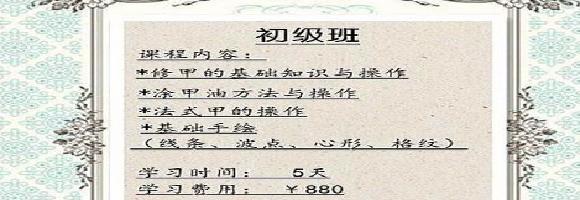 初级班
课程内容：
*修甲的基础知识与操作
*涂甲油方法与操作
*法式甲的操作
*基础手绘
（线条、波点、心形、格纹）
学习时间： 5天
学习费用： ￥880